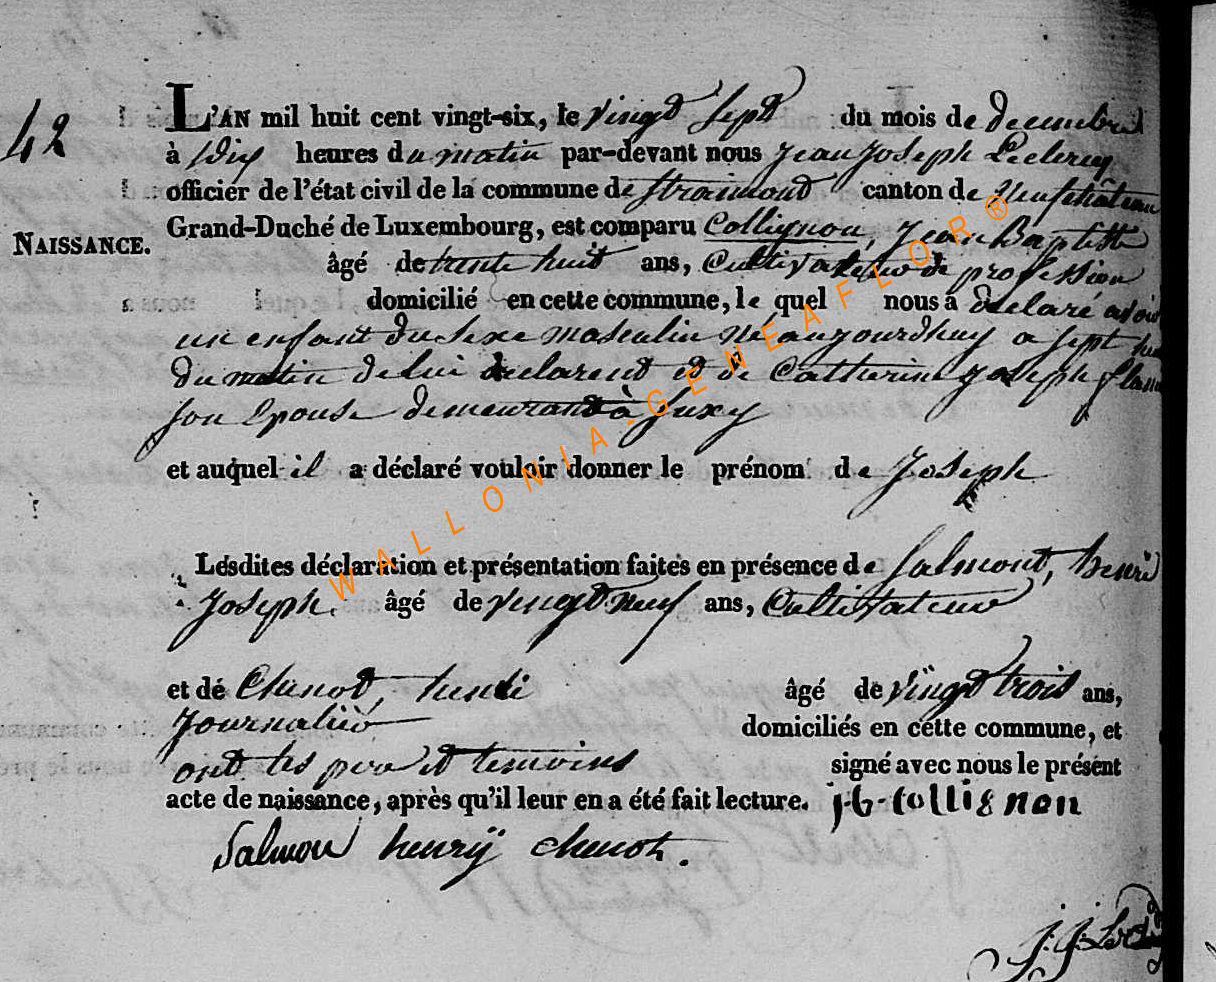 42
NAISSANCE.
L'AN mil huit cent vingt-six, le vingt sept du mois de decembre
à Dix heures du matin par-devant nous Jean Joseph Leclercq
officier de l'état civil de la commune de Straimont canton de Neufchâteau
Grand-Duché de Luxembourg, est comparu Collignon, Jean Baptiste
âgé de trente huit ans, Cultivateur de profession
domicilié en cette commune, le quel nous a declaré avoir
un enfant du sexe masculin né aujourdhuy a sept
du matin de lui declarent et de Catherine Joseph
son Epouse demeurant à Suxy
et auquel il a déclaré vouloir donner le prénom de Joseph
Lesdites déclaration et présentation faites en présence de Salmont, henri
Joseph, âgé de vingt neuf ans, Cultivateur
et de Chenot, henri âgé de vingt trois ans,
Journalier domiciliés en cette commune, et
ont les pere et temoins signé avec nous le présent
acte de naissance, après qu'il leur en a été fait lecture. j-b-collignon
Salmon henrÿ chenot.
WALLONIA-GENEAFLOR®